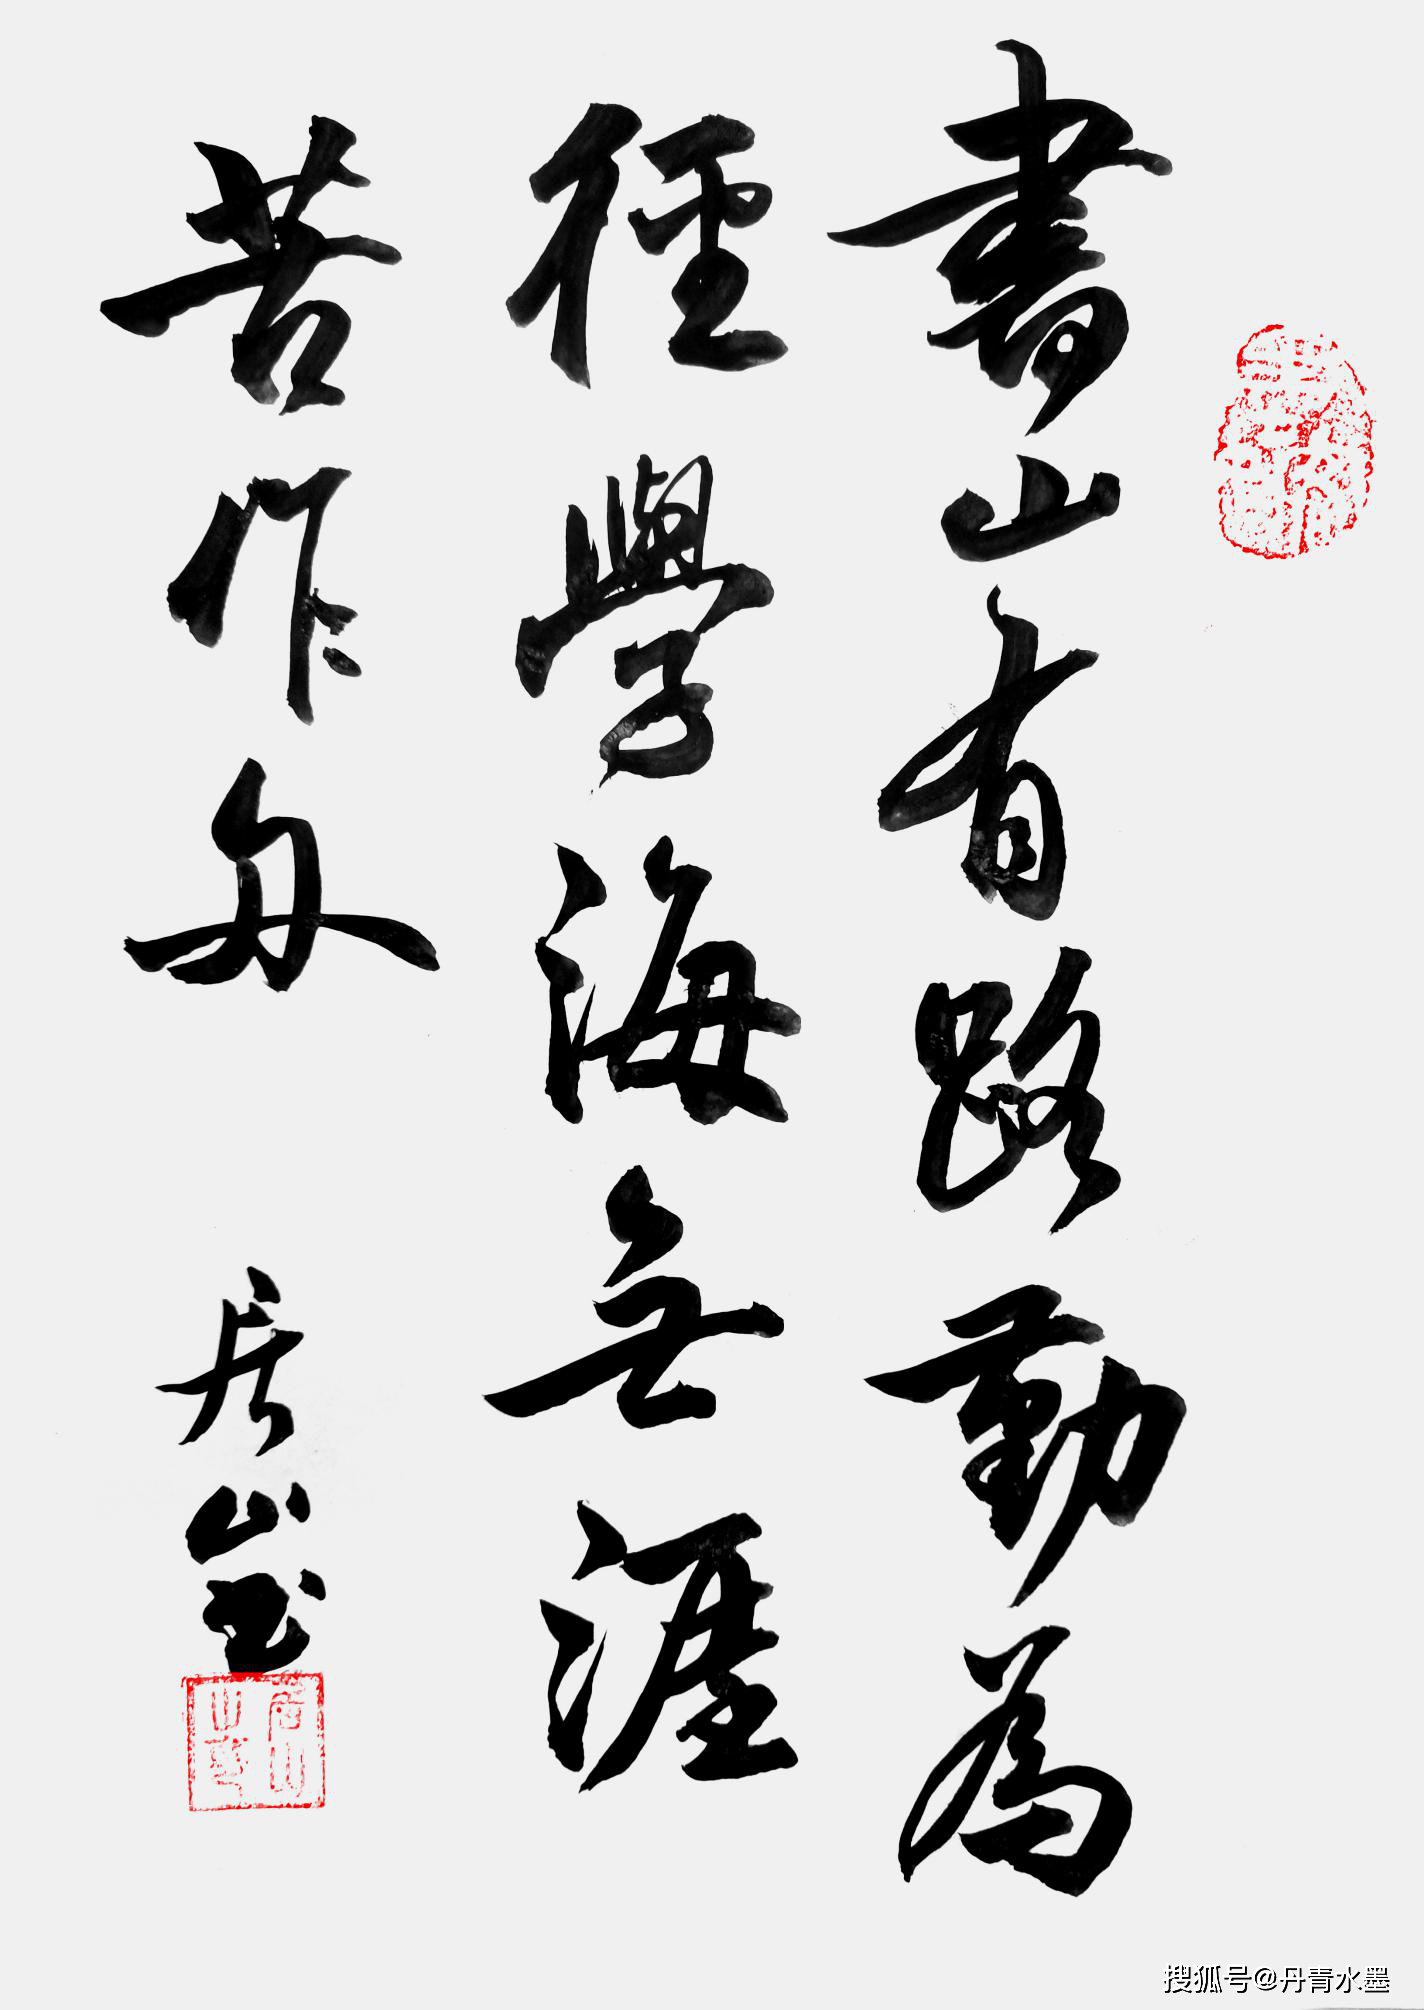 書山有路勤為
徑學海無涯
苦作舟
居山書
搜狐号@丹青水墨